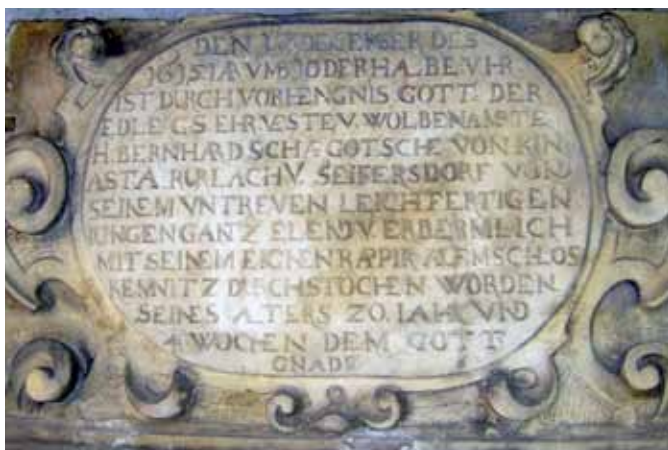 DEN DECEMBER DES
VMB DER HALBE VHR
IST DVRCH VORHENGNIS GOTT. DER
EDLE G S EHRVESTE V. WOLBENAMTE
H. BERNHARD SCHÆ GOTSCHE VON KIN
AST A RVRLACH V. SEIFERSDORF VON
SEINEM VNTREVEN LEICHFERTIGEN
IVNGEN GANTZ ELEND V ERBERMLICH
MIT SEINEM EIGEN RAPPIR ALEM SCHLOS
KEMNITZ DVRCHSTOCHEN WORDEN
SEINES ALTERS ZO. IAHR VND
4 WOCHEN DEM GOTT
GNADE